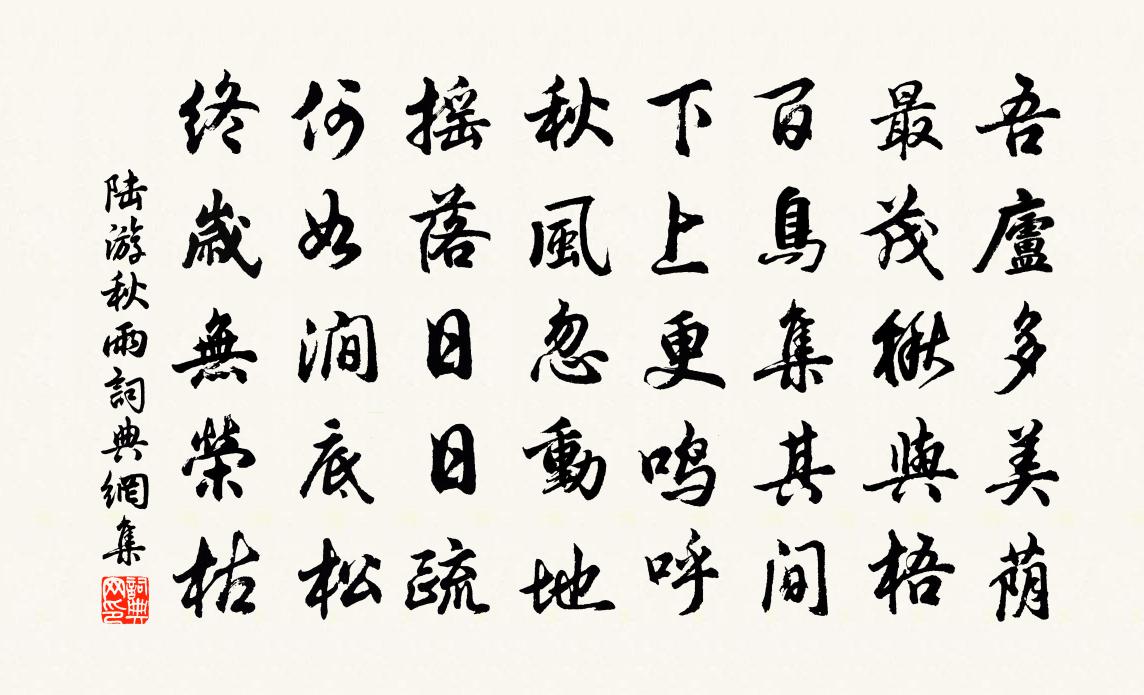 吾廬多美蔭
最茂楸與梧
百鳥集其間
下上更鳴呼
秋風忽動地
搖落日日疏
何如澗底松
終歲無榮枯
陆游秋雨詞典網集
詞典網印